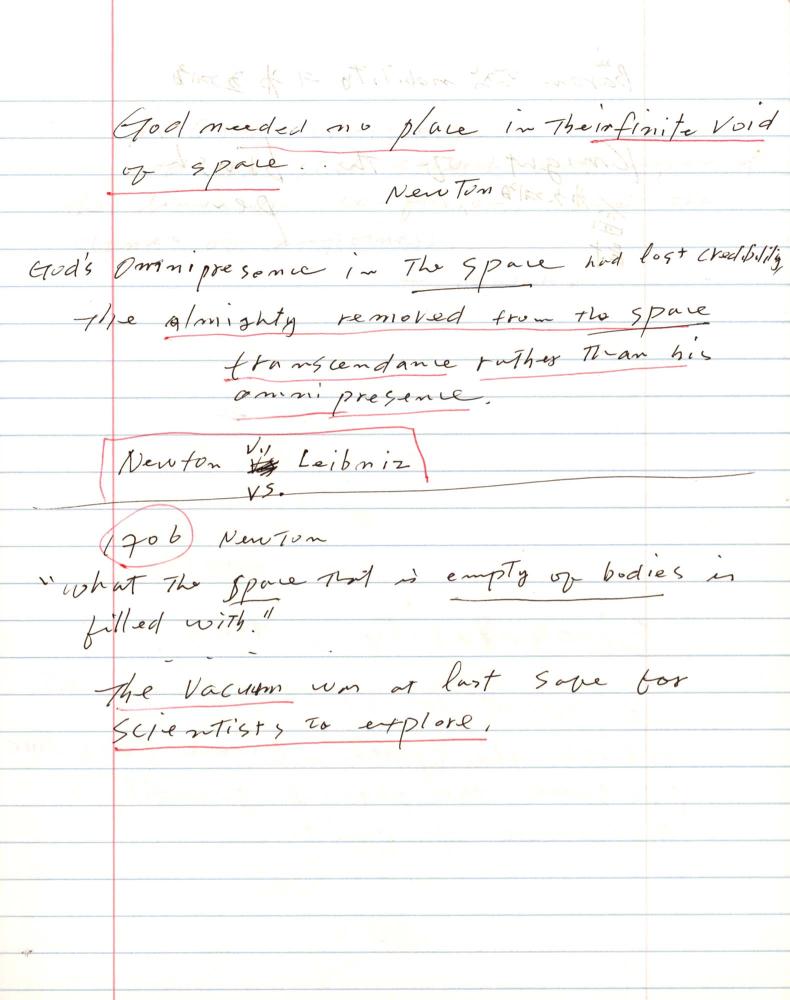 God needed no place in The infinite Void
of space...
Newton
God's Omnipresence in The space had lost credibility
The almighty removed from the space
transcendance rather Than his
omnipresence.
Newton vs. Leibniz
vs.
1706 Newton
"What The space that is empty of bodies is
filled with."
The Vacuum was at last safe for
scientists to explore.